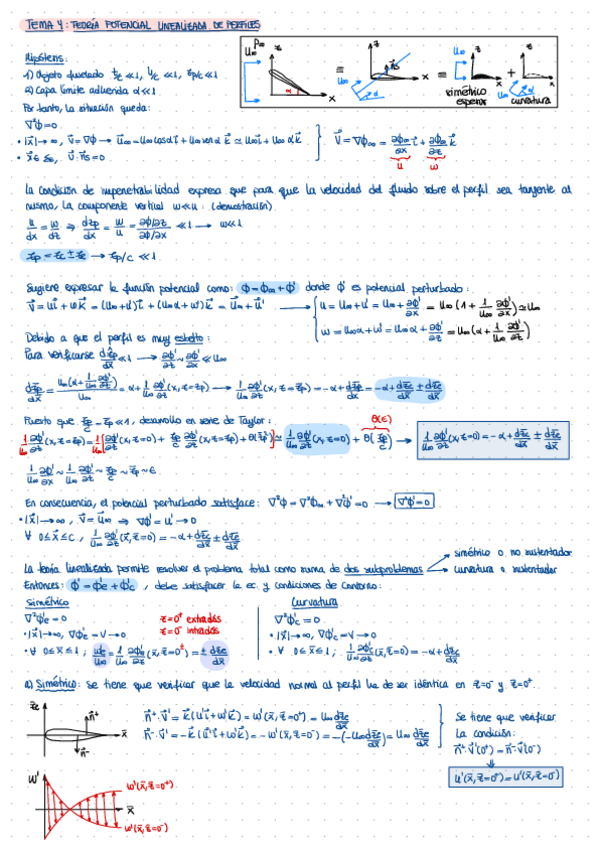 TEMA 4: TEORÍA POTENCIAL LINEALIZADA DE PERFILES
Hipótesis:
1) Objeto fuselado t/c ≪1, 1/c ≪1, zp/c ≪1
2) Capa límite adherida α≪1.
Por tanto, la situación queda:
∇²ϕ=0
• |x|→∞, v=∇ϕ → U∞=U∞cosα i+U∞senα k ≃ U∞i+U∞αk
v=∇ϕ∞= ∂ϕ∞/∂x i+ ∂ϕ∞/∂z k
u w
simétrico espesor + curvatura
La condición de impenetrabilidad expresa que para que la velocidad del fluido sobre el perfil sea tangente al
mismo, la componente vertical w≪u: (demostración)
u/dx = w/dz ⇒ dzp/dx = w/u = ∂ϕ/∂z / ∂ϕ/∂x ≪1 → w≪1
zp = zc ± ze → zp/c ≪1
Sugiere expresar la función potencial como: ϕ=ϕ∞+ϕ' donde ϕ' es potencial perturbado:
v=ui+wk=(U∞+u')i+(U∞α+w')k=U∞+u' → u=U∞+u'=U∞+∂ϕ'/∂x=U∞(1+1/U∞ ∂ϕ'/∂x)≃U∞
w=U∞α+w'=U∞α+∂ϕ'/∂z=U∞(α+1/U∞ ∂ϕ'/∂z)
Debido a que el perfil es muy esbelto:
Para verificarse dzp/dx ≪1 → ∂ϕ'/∂z ~ ∂ϕ'/∂x ≪ U∞
dzp/dx = U∞(α+1/U∞ ∂ϕ'/∂z)/U∞ = α+1/U∞ ∂ϕ'/∂z (x, z=zp) → 1/U∞ ∂ϕ'/∂z (x, z=zp) = -α+dzp/dx = -α+dzc/dx ± dze/dx
Puesto que zp/c = zp ≪1, desarrollo en serie de Taylor:
θ(ε)
1/U∞ ∂ϕ'/∂z (x,z=0) = -α+dzc/dx ± dze/dx
1/U∞ ∂ϕ'/∂x ~ 1/U∞ ∂ϕ'/∂z ~ zp/c ~ zp ~ ε
En consecuencia, el potencial perturbado satisface: ∇²ϕ=∇²ϕ∞+∇²ϕ'=0 → ∇²ϕ'=0
• |x|→∞, v=U∞ ⇒ ∇ϕ'=u'→0
∀ 0≤x≤c, 1/U∞ ∂ϕ'/∂z (x,z=0) = -α+dzc/dx ± dze/dx
La teoría linealizada permite resolver el problema total como suma de dos subproblemas
simétrico o no sustentador
curvatura o sustentador
Entonces: ϕ'=ϕ'e+ϕ'c, debe satisfacer la ec. y condiciones de contorno:
simétrico
curvatura
∇²ϕ'e=0
z=0⁺ extradós
z=0⁻ intradós
∇²ϕ'c=0
• |x|→∞, ∇ϕ'e=v→0
• |x|→∞, ∇ϕ'c=v→0
• ∀ 0≤x≤1, w'e/U∞ = 1/U∞ ∂ϕ'e/∂z (x,z=0±) = ± dze/dx
• ∀ 0≤x≤1, 1/U∞ ∂ϕ'c/∂z (x,z=0) = -α+dzc/dx
a) Simétrico: se tiene que verificar que la velocidad normal al perfil ha de ser idéntica en z=0⁻ y z=0⁺.
n⁺·v'=k(u'i+w'k)=w'(x,z=0⁺)=U∞ dze/dx
n⁻·v'=-k(u'i+w'k)=-w'(x,z=0⁻)=-(-U∞ dze/dx)=U∞ dze/dx
Se tiene que verificar
la condición:
n⁺·v'(0⁺)=n⁻·v'(0⁻)
u'(x,z=0⁺)=u'(x,z=0⁻)
w'
w'(x,z=0⁺)
x
w'(x,z=0⁻)